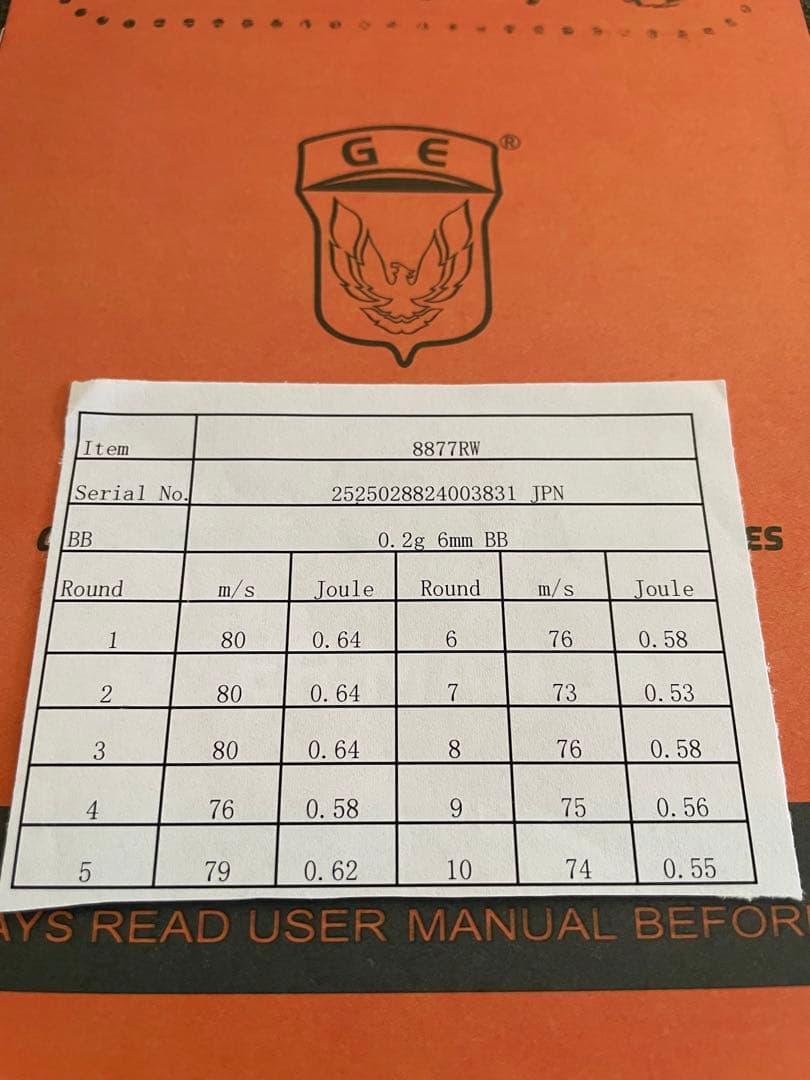 G E ®
Item 8877RW
Serial No. 2525028824003831 JPN
BB 0.2g 6mm BB
ES
Round m/s Joule Round m/s Joule
1 80 0.64 6 76 0.58
2 80 0.64 7 73 0.53
3 80 0.64 8 76 0.58
4 76 0.58 9 75 0.56
5 79 0.62 10 74 0.55
AYS READ USER MANUAL BEFOR